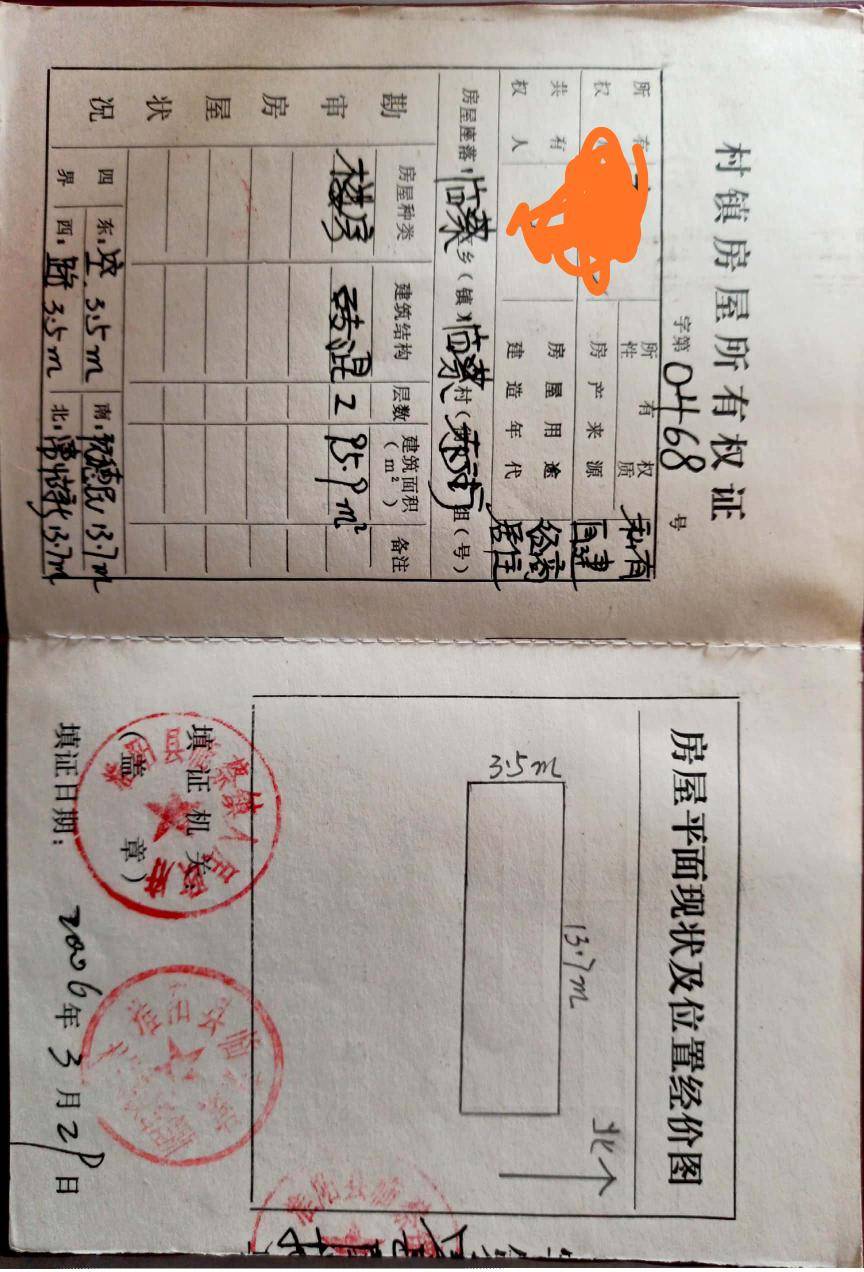 村镇房屋所有权证
字第0468号
所有权
所有权性质 私有
房产来源 自建
共有权人
房屋用途
建造年代
居住
房屋座落：临蔡乡（镇）临蔡村（ 组（号）
勘审房屋状况
房屋种类 建筑结构 层数 建筑面积（m²） 备注
楼房 砖混 2 95.9m²
四界
东：空 3.5m 南： 13.7m
西：路 3.5m 北： 13.7m
房屋平面现状及位置经价图
北
3.5m
13.7m
填证机关：
（盖章）
填证日期：2006年3月29日